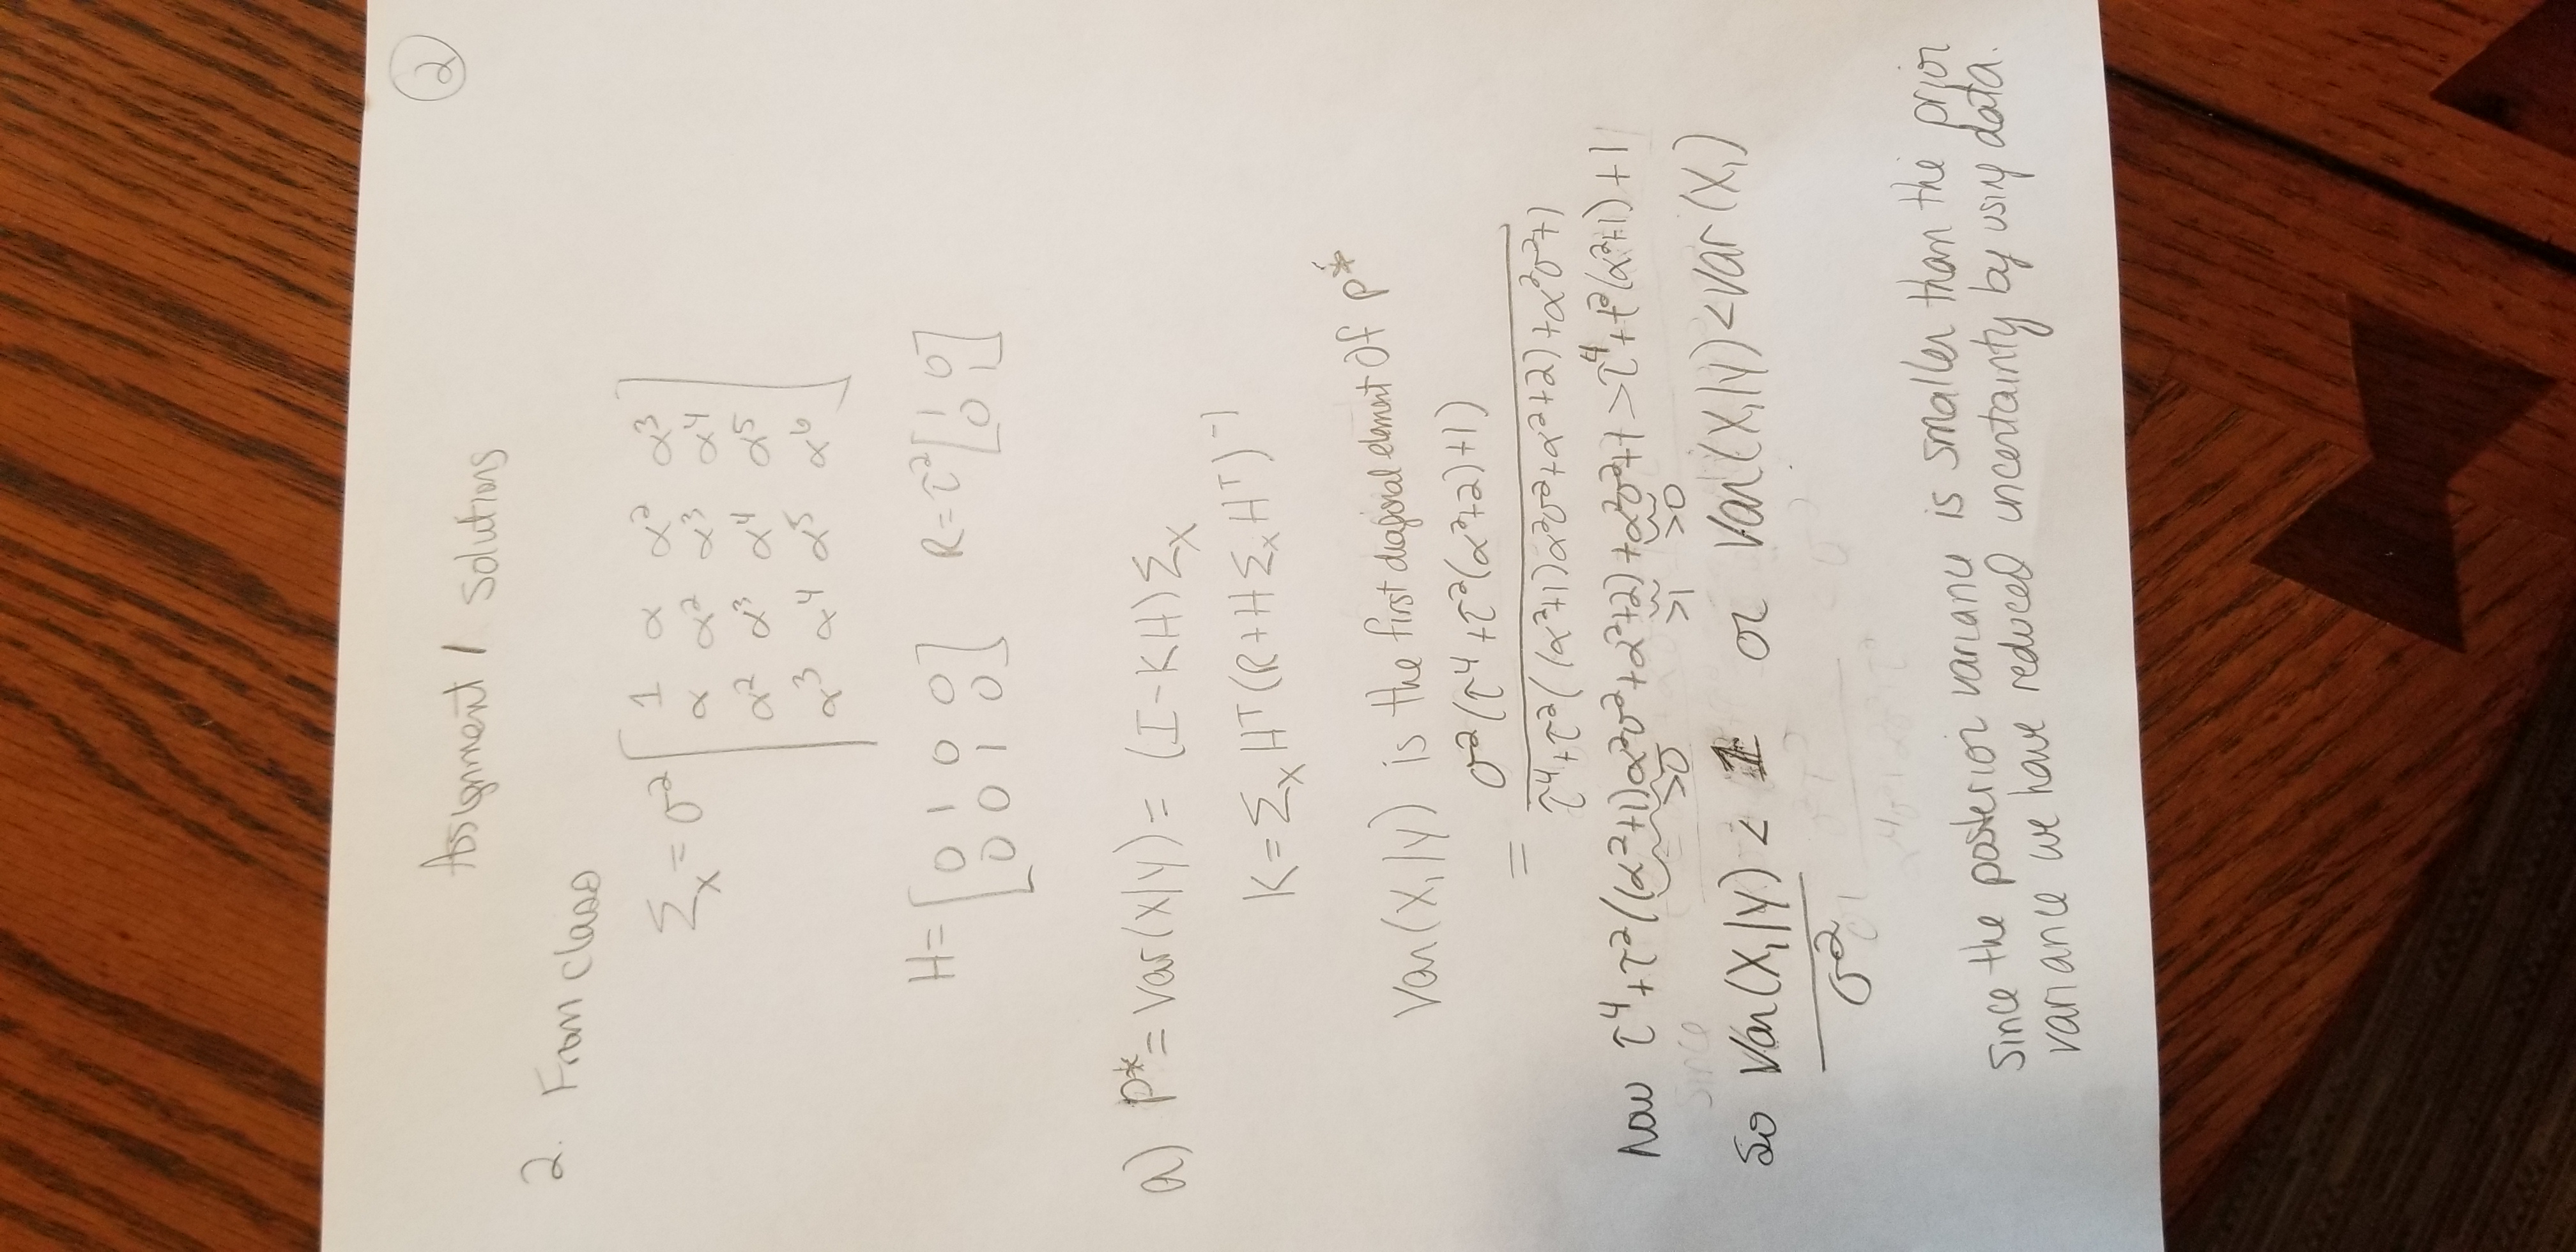 ②
Assignment 1 Solutions
2. From class
Σ_X = σ² [ 1 α α² α³
α α² α³ α⁴
α² α³ α⁴ α⁵
α³ α⁴ α⁵ α⁶ ]
H = [ 0 1 0 0 R = τ² [ 1 0
0 0 1 0 ] 0 1 ]
a) P* = Var(X|Y) = (I-KH)Σ_X
K = Σ_X Hᵀ(R+HΣ_X Hᵀ)⁻¹
Var(X₁|Y) is the first diagonal element of P*
= σ²(τ⁴+τ²(α²+2)+1)
τ⁴+τ²((α²+1)α²σ²+α²+2)+α²σ²+1
Now τ⁴+τ²((α²+1)α²σ²+α²+2)+α²σ²+1 > τ⁴+t²(α²+1)+1
>0 >1 >0
Since
So Var(X₁|Y) < 1 or Var(X₁|Y) < Var(X₁)
σ²
Since the posterior variance is smaller than the prior
variance we have reduced uncertainty by using data.